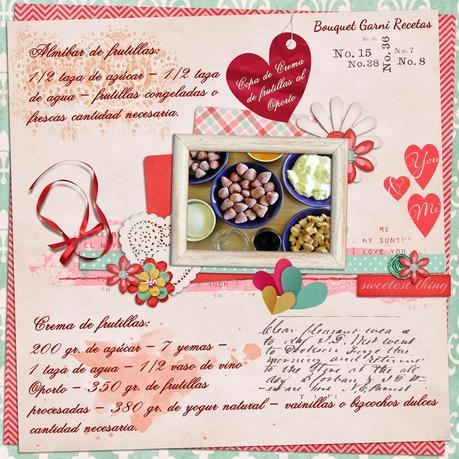 Bouquet Garni Recetas
Almibar de frutillas:
1/2 taza de azúcar - 1/2 taza
de agua - frutillas congeladas o
frescas cantidad necesaria.
No. 15
No. 38
No. 36
No. 7
No. 8
Copa de Crema
de frutillas al
Oporto
You
&
Me
ME
MY SUNSH
I LOVE YOU
sweetest thing
Crema de frutillas:
200 gr. de azúcar - 7 yemas -
1 taza de agua - 1/2 vaso de vino
Oporto - 350 gr. de frutillas
procesadas - 380 gr. de yogur natural - vainillas o bizcochos dulces
cantidad necesaria.
Clear pleasant
went
to
morning and
to the
at the
day